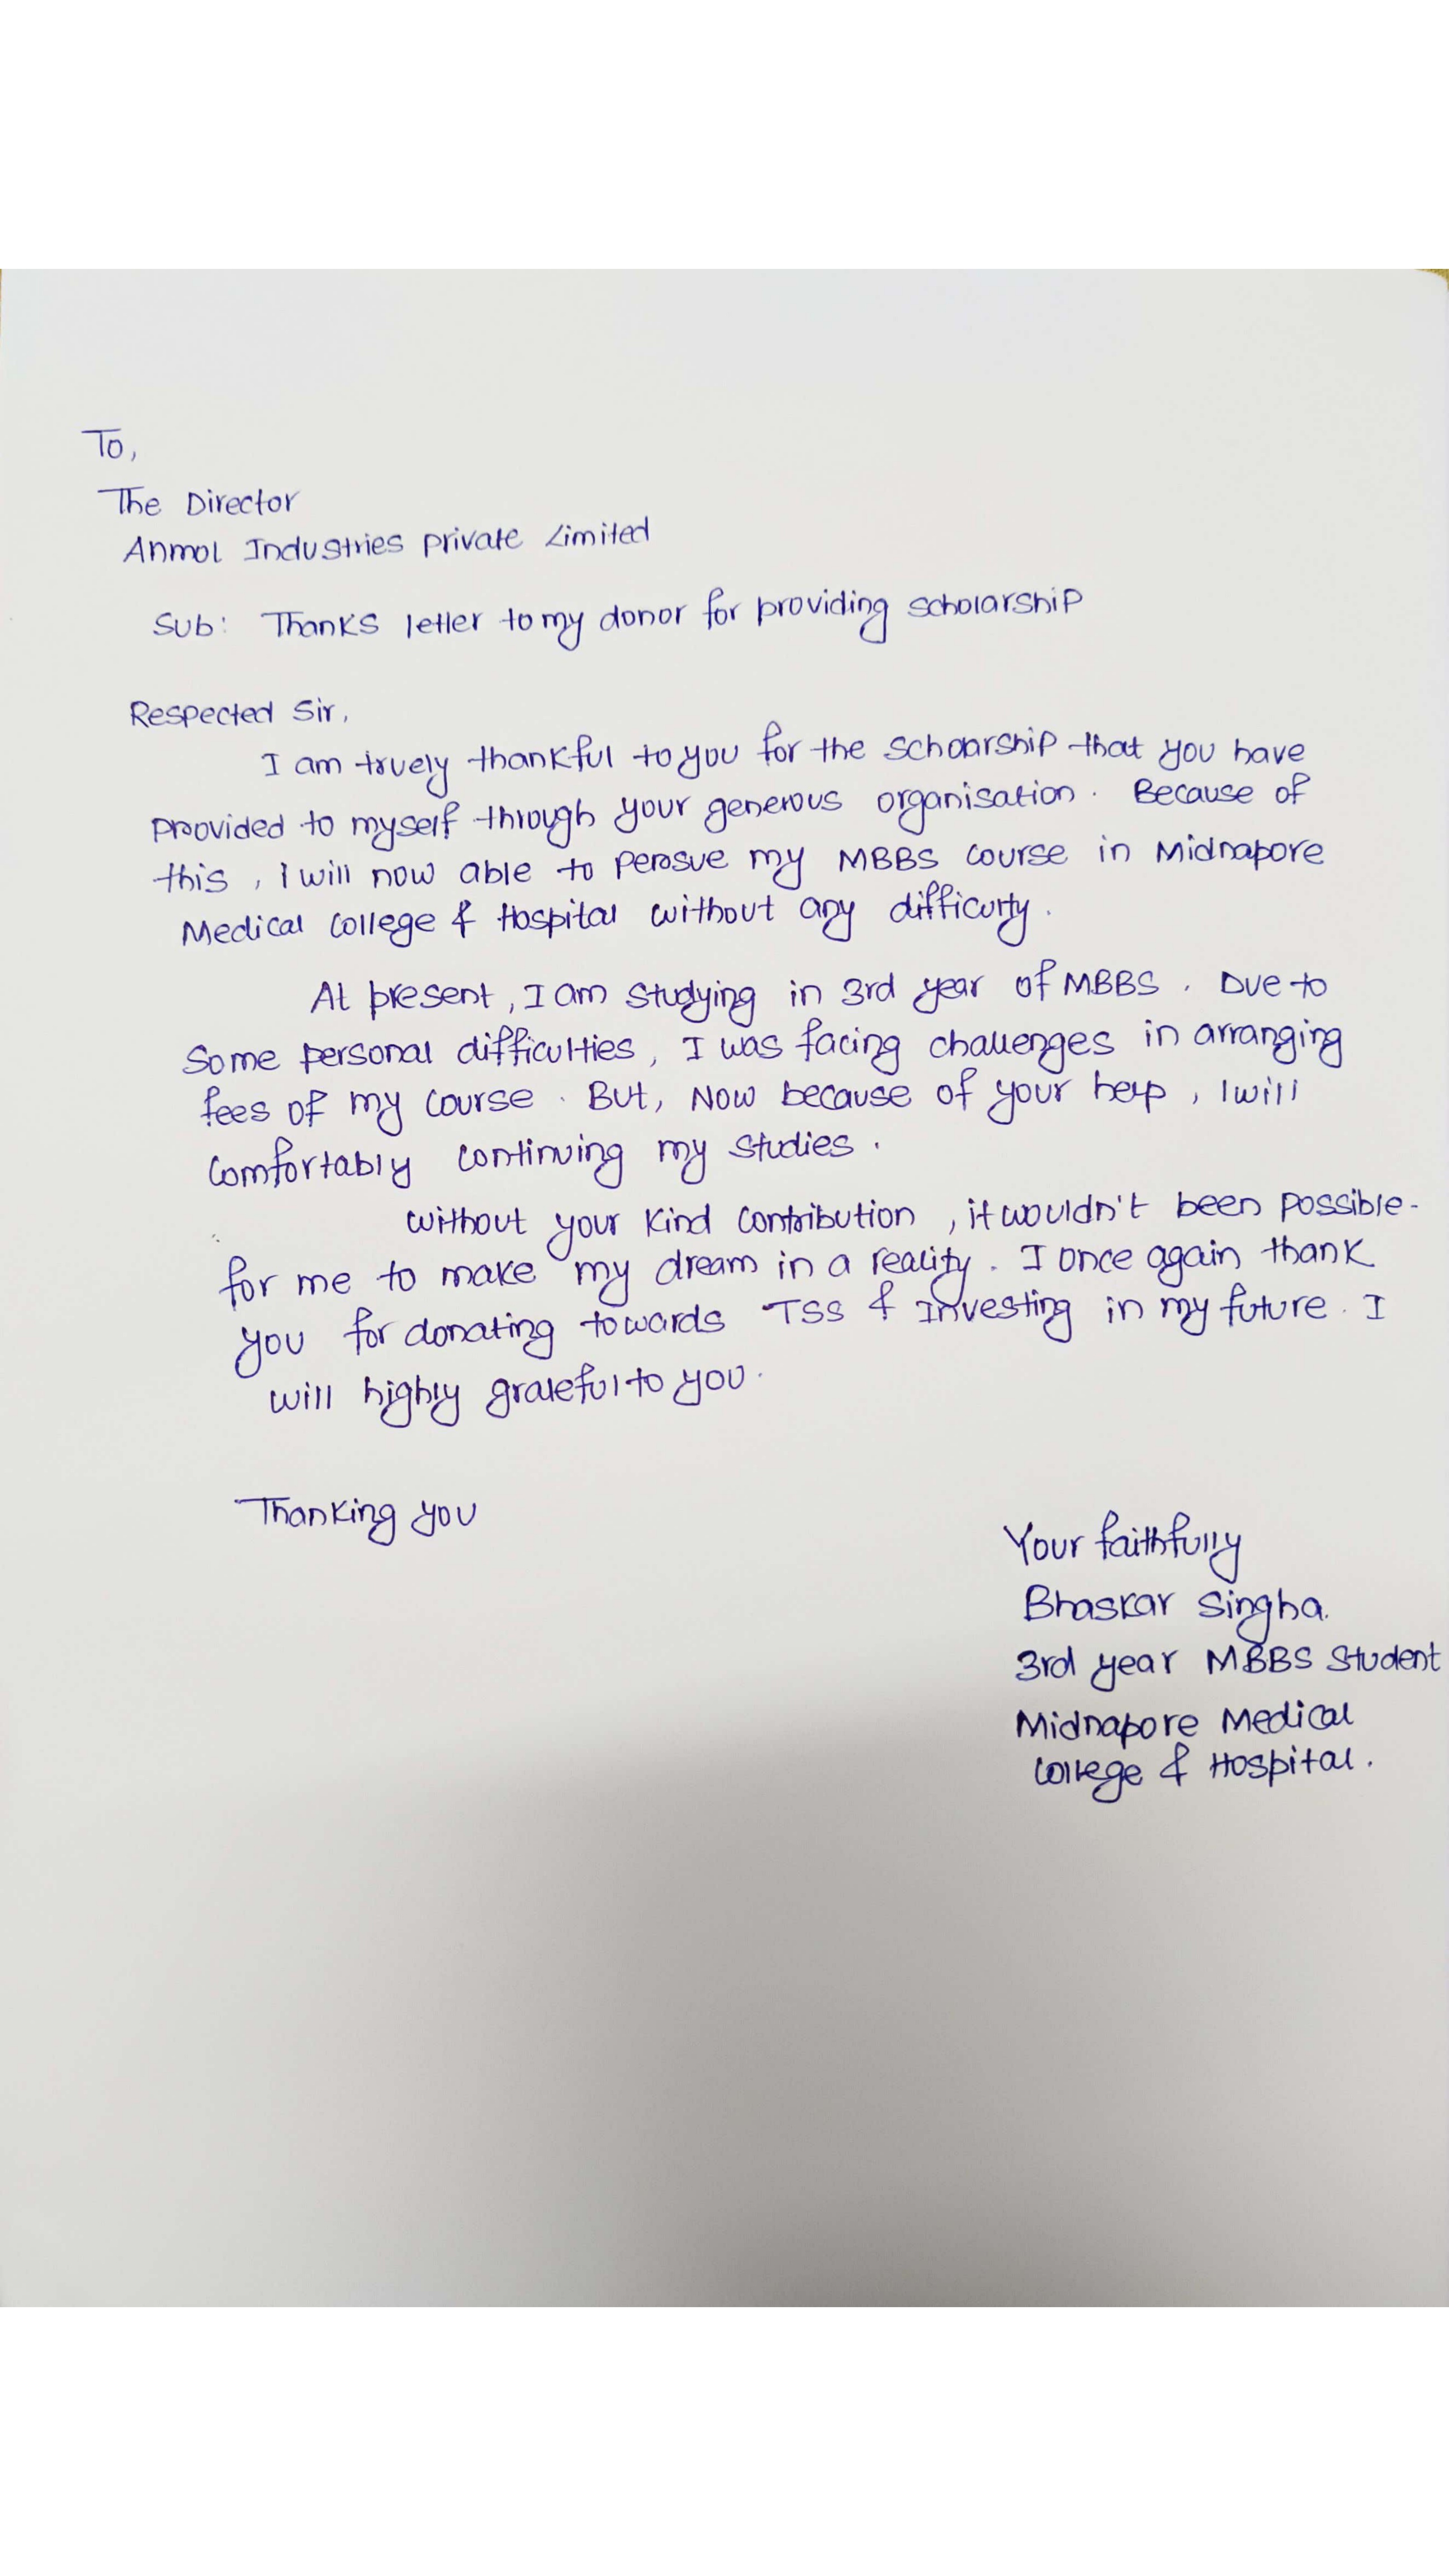 To,
The Director
Anmol Industries private Limited
Sub: Thanks letter to my donor for providing scholarship
Respected Sir,
I am truely thankful to you for the schoarship that you have
provided to myself through your generous organisation. Because of
this, I will now able to persue my MBBS course in Midnapore
Medical College & Hospital without any difficulty.
At present, I am studying in 3rd year of MBBS. Due to
some personal difficulties, I was facing challenges in arranging
fees of my course. But, Now because of your help, I will
comfortably continuing my studies.
without your kind contribution, it wouldn't been possible-
for me to make my dream in a reality. I once again thank
you for donating towards TSS & Investing in my future. I
will highly grateful to you.
Thanking you
Your faithfully
Bhaskar Singha.
3rd year MBBS Student
Midnapore Medical
College & Hospital.